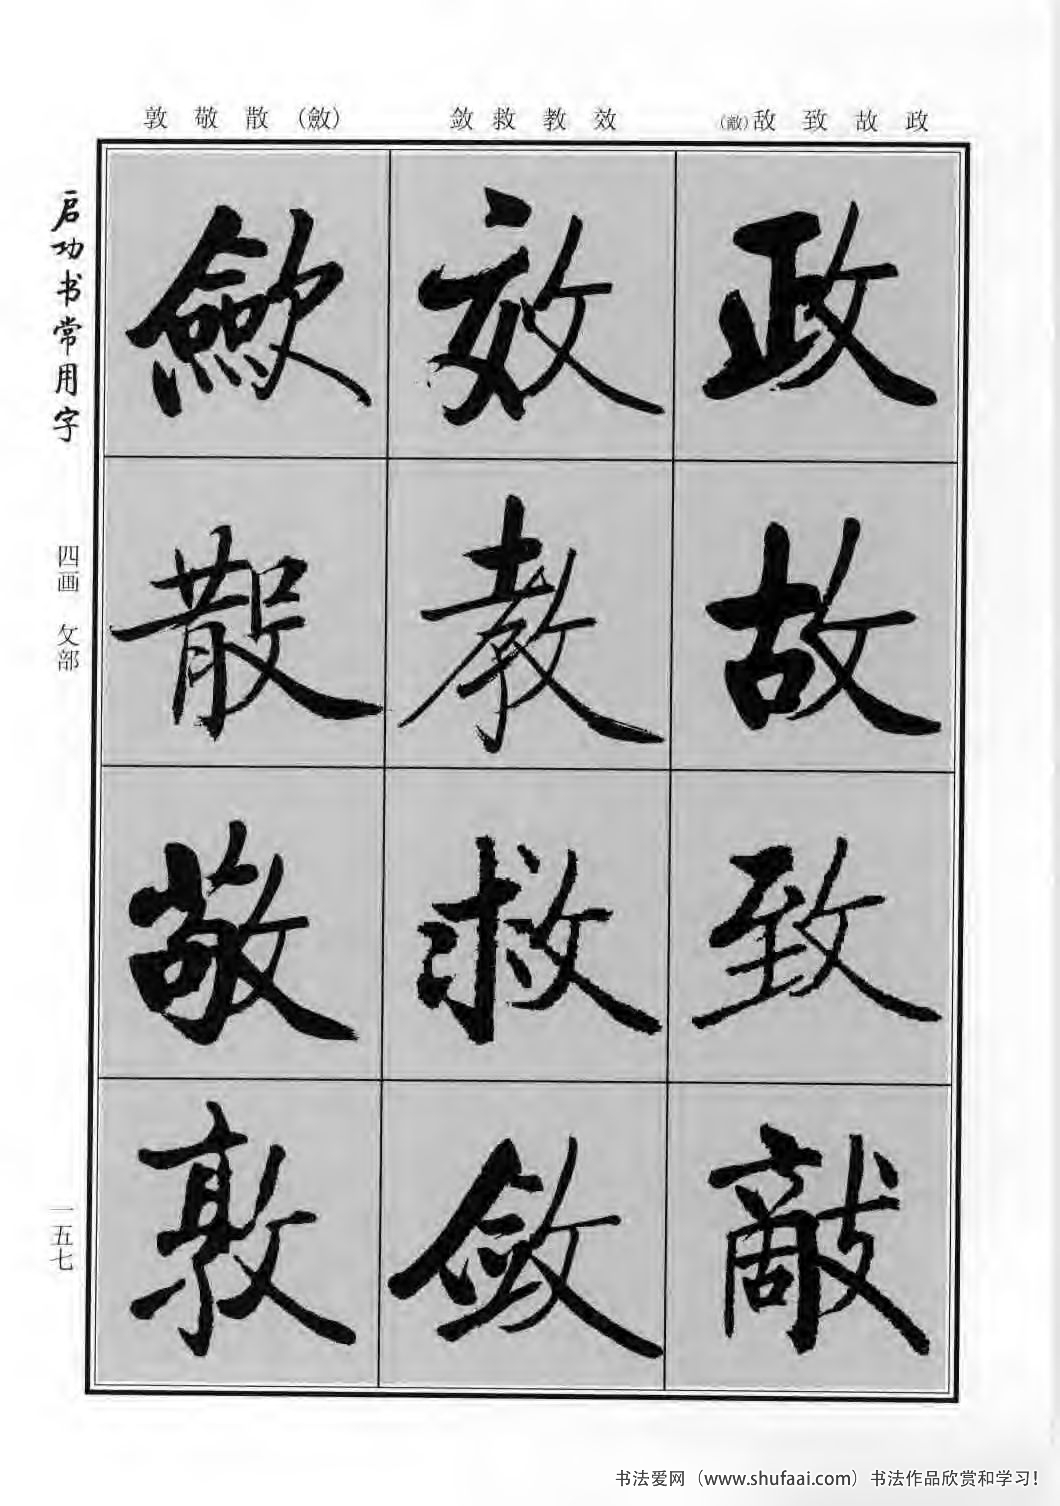 政 故 致 敌(敵)
效 教 救 敛
(斂) 散 敬 敦
政
故
致
敵
效
教
救
敛
歛
散
敬
敦
启功书常用字
四画 攵部
一五七
书法爱网（www.shufaai.com）书法作品欣赏和学习！